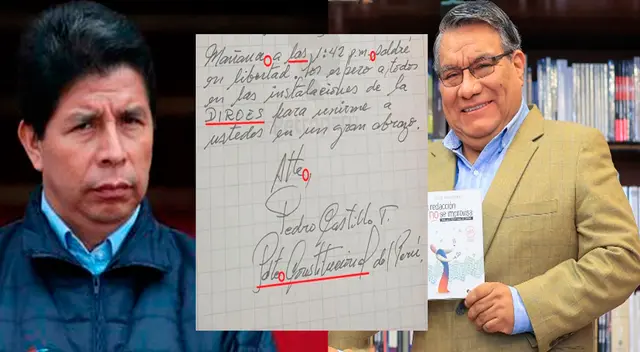 Mañana a las 1:42 p.m. saldré
en libertad, los espero a todos
en las instalaciones de la
DIROES para unirme a
ustedes en un gran abrazo.
Atte,
Pedro Castillo T.
Pdte Constitucional del Perú.
redacción
NO se improvisa